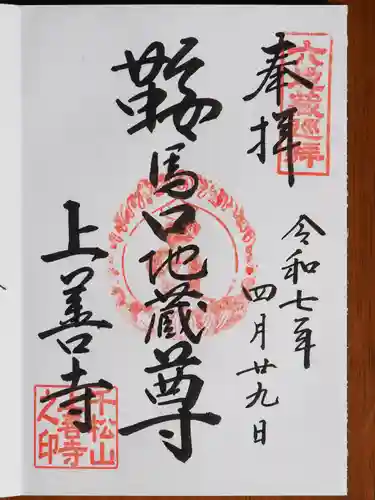 奉拝
六地蔵巡拝
令和七年
四月廿九日
鞍馬口地蔵尊
上善寺
千松山
上善寺
之印